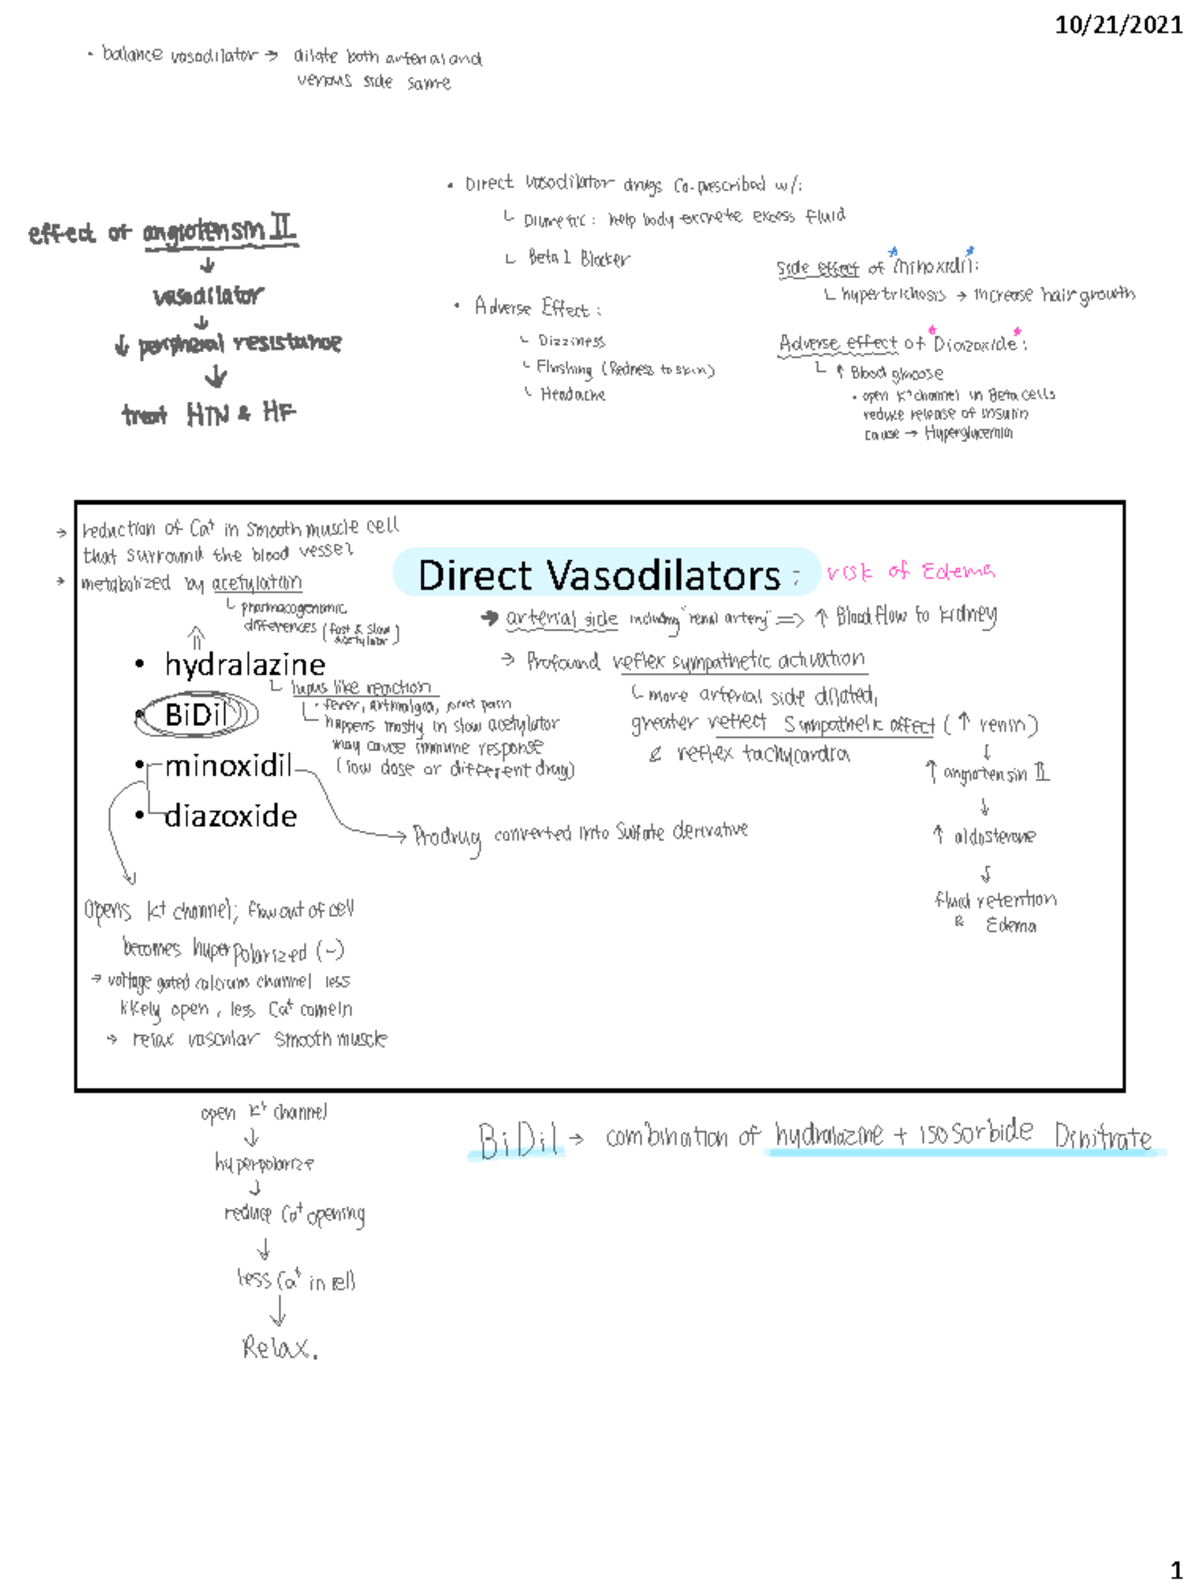 10/21/2021
• balance vasodilator → dilate both arterial and
venous side same
effect of angiotensin II
↓
vasodilator
↓
↓ peripheral resistance
↓
treat HTN & HF
• Direct Vasodilator drugs Co-prescribed w/:
└ Diuretic: help body excrete excess fluid
└ Beta 1 Blocker
• Adverse Effect:
└ Dizziness
└ Flushing (Redness to skin)
└ Headache
Side effect of *Minoxidil*:
└ hypertrichosis → increase hair growth
Adverse effect of *Diazoxide*:
└ ↑ Blood glucose
• open K+ channel in Beta cells
reduce release of insulin
cause → Hyperglycemia
→ reduction of Ca+ in smooth muscle cell
that surround the blood vessel
→ metabolized by acetylation
└ pharmacogenomic
differences (fast & slow
acetylator)
Direct Vasodilators : risk of Edema
→ arterial side including "renal artery" => ↑ Blood flow to kidney
→ Profound reflex sympathetic activation
└ more arterial side dilated,
greater reflect sympathetic affect (↑ renin)
& reflex tachycardia
↓
↑ angiotensin II
↓
↑ aldosterone
↓
fluid retention
& Edema
• hydralazine
└ lupus like reaction
└ • fever, arthralgia, joint pain
└ happens mostly in slow acetylator
may cause immune response
(low dose or different drug)
• BiDil
• minoxidil
→ Prodrug converted into Sulfate derivative
• diazoxide
Opens K+ channel; flow out of cell
becomes hyperpolarized (-)
→ voltage gated calcium channel less
likely open, less Ca+ come in
→ relax vascular smooth muscle
open K+ channel
↓
hyperpolarize
↓
reduce Ca+ opening
↓
less Ca+ in cell
↓
Relax.
BiDil → combination of hydralazine + isosorbide Dinitrate
1